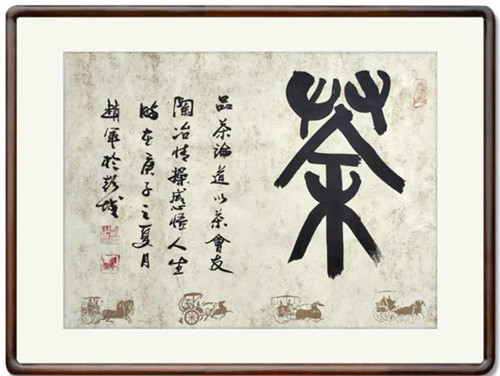 茶
品茶論道以茶會友
陶冶情操感悟人生
時在庚子之夏月
趙軍於彭城